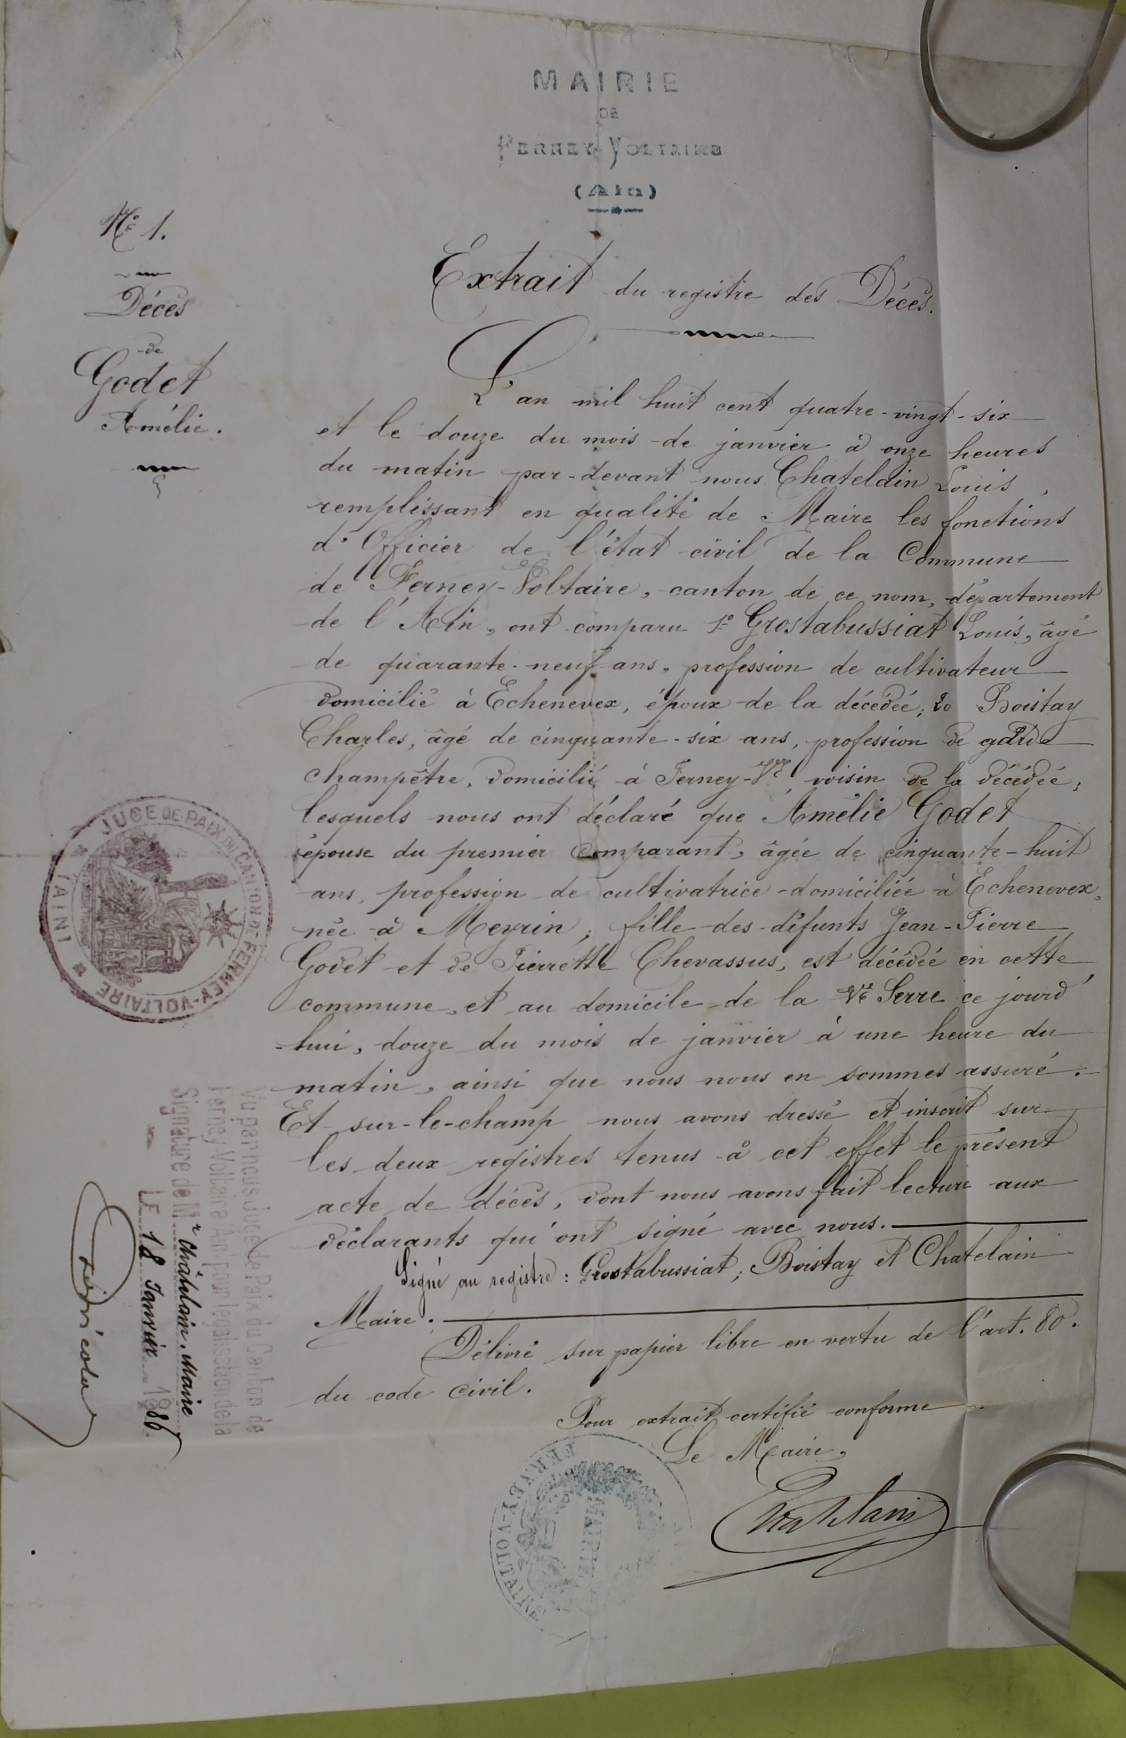 MAIRIE
DE
FERNEY-VOLTAIRE
(Ain)
Nº 1.
Décès
de
Godet
Amélie.
Extrait du registre des Décès.
L'an mil huit cent quatre-vingt-six
et le douze du mois de janvier à onze heures
du matin par-devant nous Chatelain Louis,
remplissant en qualité de Maire les fonctions
d'Officier de l'état civil de la Commune
de Ferney-Voltaire, canton de ce nom, département
de l'Ain, ont comparu 1º Grostabussiat Louis, âgé
de quarante-neuf ans, profession de cultivateur
domicilié à Echenevex, époux de la décédée; 2º Boistay
Charles, âgé de cinquante-six ans, profession de garde
champêtre, domicilié à Ferney-Vre voisin de la décédée;
lesquels nous ont déclaré que Amélie Godet
épouse du premier comparant, âgée de cinquante-huit
ans, profession de cultivatrice domiciliée à Echenevex,
née à Meyrin, fille des défunts Jean-Pierre
Godet et de Pierrette Chevassus, est décédée en cette
commune, et au domicile de la Vve Serre ce jourd'
hui, douze du mois de janvier à une heure du
matin, ainsi que nous nous en sommes assuré.
Et sur-le-champ nous avons dressé et inscrit sur
les deux registres tenus à cet effet le présent
acte de décès, dont nous avons fait lecture aux
déclarants qui ont signé avec nous.
Signé au registre: Grostabussiat, Boistay et Chatelain
Maire.
Délivré sur papier libre en vertu de l'art. 80.
du code civil.
Pour extrait certifié conforme
Le Maire,
Chatelain
JUGE DE PAIX DU CANTON DE FERNEY-VOLTAIRE
(AIN)
Vu par nous Juge de Paix du Canton de
Ferney-Voltaire Ain pour légalisation de la
Signature de Mr Châtelain, Maire
LE 18 Janvier 1886.
MAIRIE
FERNEY-VOLTAIRE